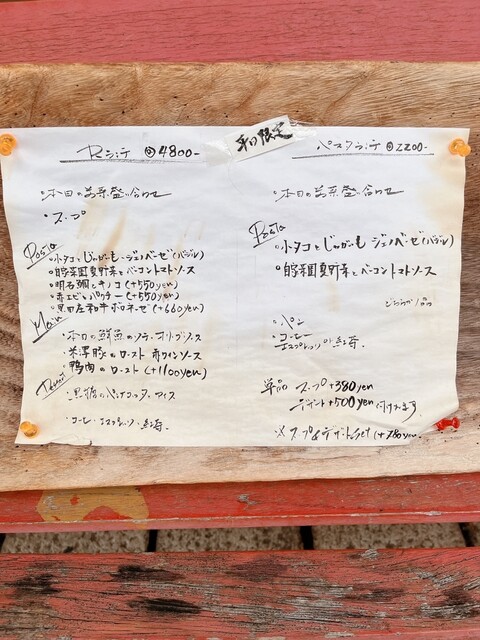 平日限定
Rランチ ◎4800-
・本日の前菜盛り合わせ
・スープ
Pasta
・小タコとじゃがいも ジェノベーゼ(バジル)
・自家菜園夏野菜とベーコントマトソース
・明石鯛とキノコ (+550yen)
・赤エビとパクチー (+550yen)
・黒田庄和牛ボロネーゼ (+660yen)
Main
・本日の鮮魚のソテー
・米澤豚のロースト 赤ワインソース
・鴨肉のロースト (+1100yen)
・黒糖のパンナコッタ アイス
・コーヒー・エスプレッソ・紅茶
パスタランチ ◎2200-
・本日の前菜盛り合わせ
Pasta
・小タコとじゃがいも ジェノベーゼ(バジル)
・自家菜園夏野菜とベーコントマトソース
どちらか1つ
・パン
・コーヒー
エスプレッソ or 紅茶
単品 スープ +380yen
デザート +500yen 付けれます
※スープ&デザートset (+780yen